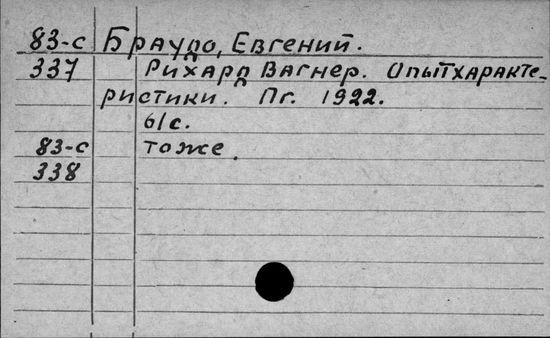 83-с Браудо, Евгений.
337 Рихард Вагнер. Опыт характе-
ристики. Пг. 1922.
61с.
83-с тоже.
338